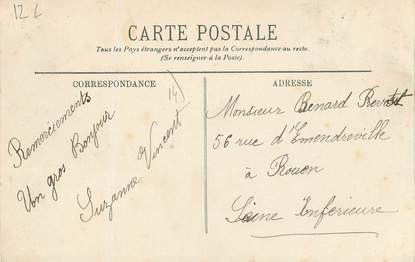 12 €
CARTE POSTALE
Tous les Pays étrangers n'acceptent pas la Correspondance au recto.
(Se renseigner à la Poste).
CORRESPONDANCE
14)
Remerciements
Un gros Bonjour
Suzanne Vincent
ADRESSE
Monsieur Benard
56 rue d'Emendreville
à Rouen
Seine Inférieure